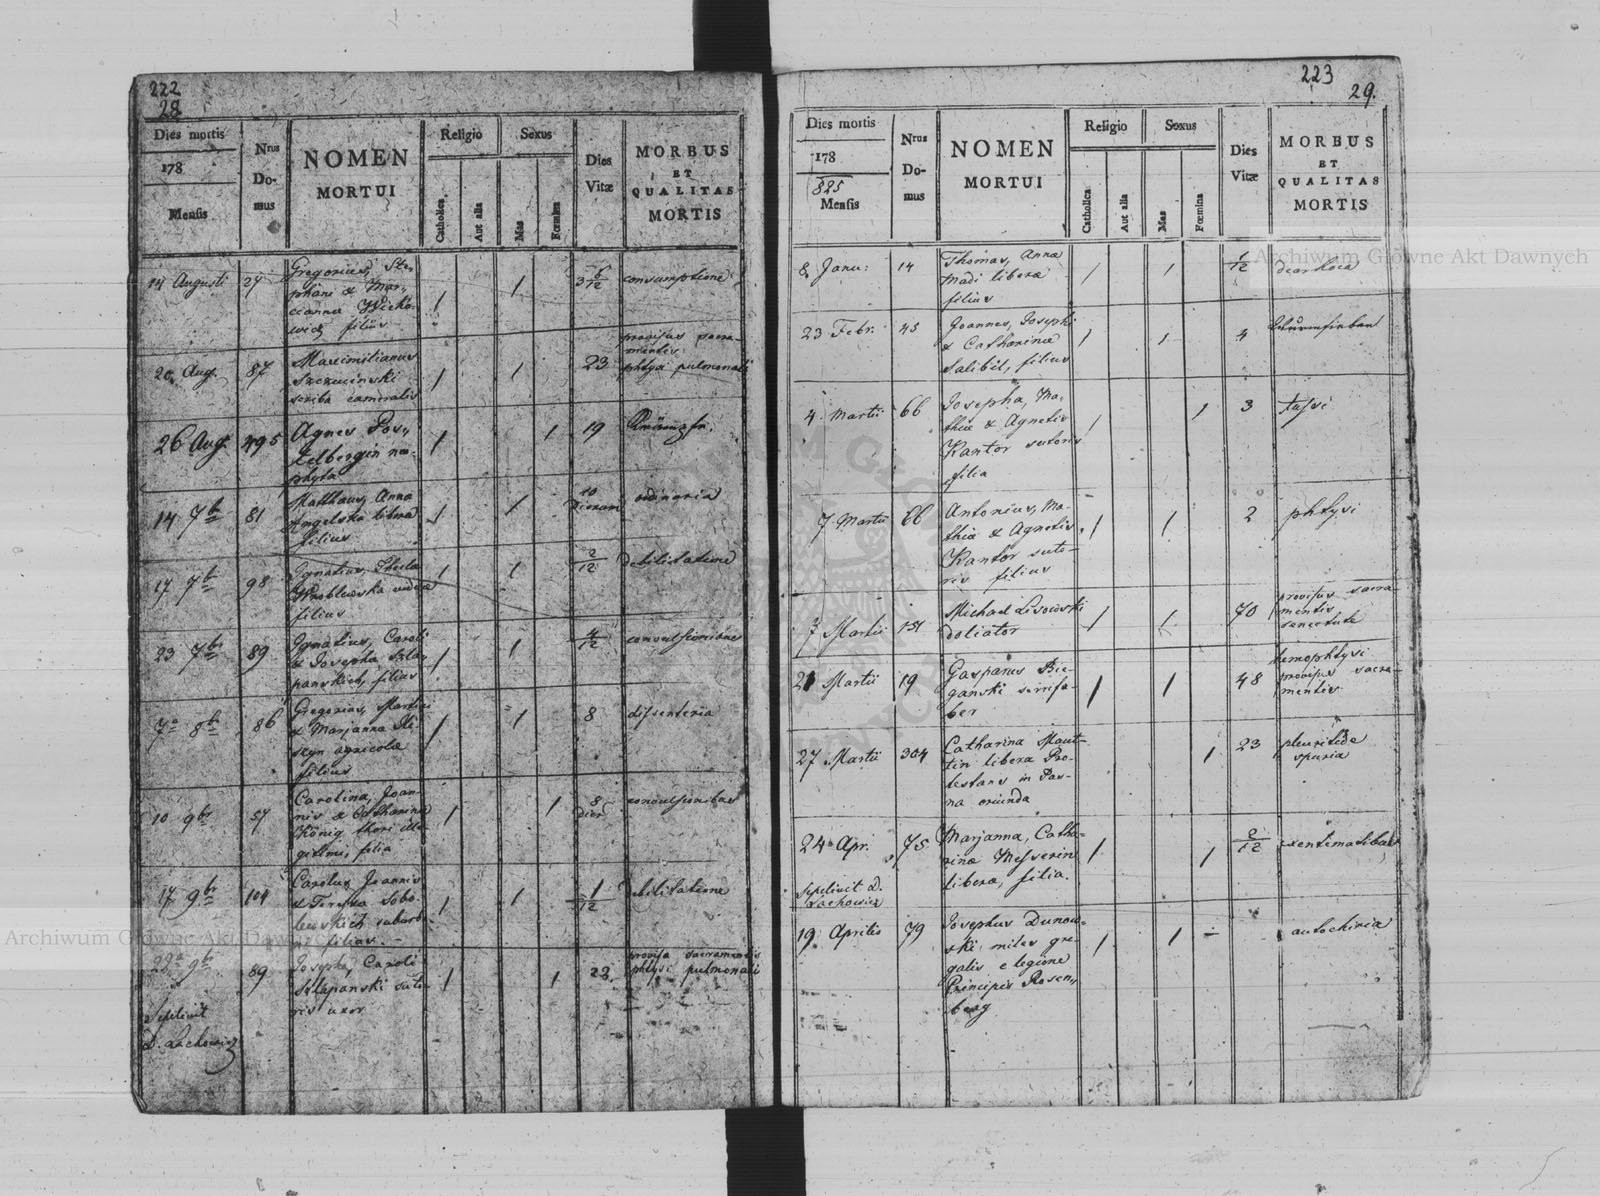 222
28
Dies mortis
178
Mensis
Nrus
Do-
mus
NOMEN
MORTUI
Religio
Catholica
Aut alia
Sexus
Mas
Fœmina
Dies
Vitæ
MORBUS
ET
QUALITAS
MORTIS
14 Augusti 27
Gregorius, Ste-
phani & Mar-
cianna
filius
1 1 3 6/12 consumptione
20 Aug. 87
Maximilianus
Szczuciński
scriba cameralis
1 1 23
provisus sacra-
mentis
phtysi pulmonali
26 Aug. 495
Agnes Pos-
telbergin neo-
phyta
1 1 19
14 7br 81
Matthaus, Anna
Angelska libera
filius
1 1 10
Dierum
ordinaria
17 7br 98
Ignatius, Thecla
Wroblewska vidua
filius
1 1 2/12 debilitatione
23 7br 89
Ignatius, Caroli
& Josepha Szla-
panskich, filius
1 1 4/12 convulsionibus
7a 8br 86
Gregorius, Martini
& Marjanna
agricola
filius
1 1 8 dissenteria
10 9br 57
Carolina, Joan-
nis & Catharina
König thori ille-
gittimi, filia
1 1 8
dier
convulsionibus
17 9br 104
Carolus, Joannis
& Teressa Sobo-
lewskich suburb.
filius
1 1 1/12 debilitatione
22a 9br 89
Josepha, Caroli
Szlapanski suto-
ris uxor
1 1 22
provisa sacramentis
phtysi pulmonali
Sepelivit
D. Lachowicz
223
29.
Dies mortis
178
825
Mensis
Nrus
Do-
mus
NOMEN
MORTUI
Religio
Catholica
Aut alia
Sexus
Mas
Fœmina
Dies
Vitæ
MORBUS
ET
QUALITAS
MORTIS
8 Janu: 14
Thomas, Anna
Madi libera
filius
1 1 1/12 diarhoea
23 Febr. 45
Joannes, Josephi
& Catharina
Salibil, filius
1 1 4
4 Martii 66
Josepha, Ma-
thia & Agnetis
Kantor sutoris
filia
1 1 3 tussi
7 Martii 66
Antonius, Ma-
thia & Agnetis
Kantor suto-
ris filius
1 1 2 phtysi
7 Martii 151
Michael Lisowski
doliator
1 1 70
provisus sacra-
mentis
senectute
21 Martii 19
Gasparus Bie-
ganski serrifa-
ber
1 1 48
hemophtysi
provisus sacra-
mentis
27 Martii 304
Catharina Maut-
tin libera Pro-
testans in Pas-
na oriunda
1 23
pleuritide
spuria
24a Apr. 75
Marjanna, Catha-
rina Messerin
libera, filia.
1 1 2/12 exentematibus
Sepelivit D.
Lachowicz
19 Aprilis 79
Josephus Dunow-
ski miles gre-
galis e legione
Principis Rosen-
berg
1 1 autochiria
Archiwum Główne Akt Dawnych
Archiwum Główne Akt Dawnych